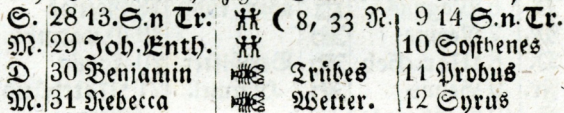 S. 28 13.S.n Tr. ♊ ☾ 8, 33 N. 9 14 S.n.Tr.
M. 29 Joh. Enth. ♊ 10 Sosthenes
D 30 Benjamin ♋ Trübes 11 Probus
M. 31 Rebecca ♋ Wetter. 12 Syrus